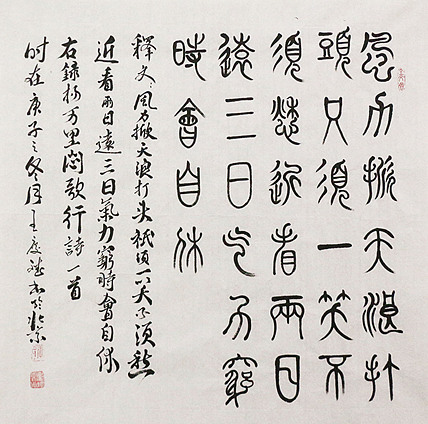 風力掀天浪打
頭只須一笑不
須愁近看兩日
遠三日气力窮
時會自休
釋文:风力掀天浪打头祇须一笑不须愁
近看兩日遠三日氣力窮時會自休
右錄杨万里悶歌行詩一首
时在庚子之冬月王度书於北京